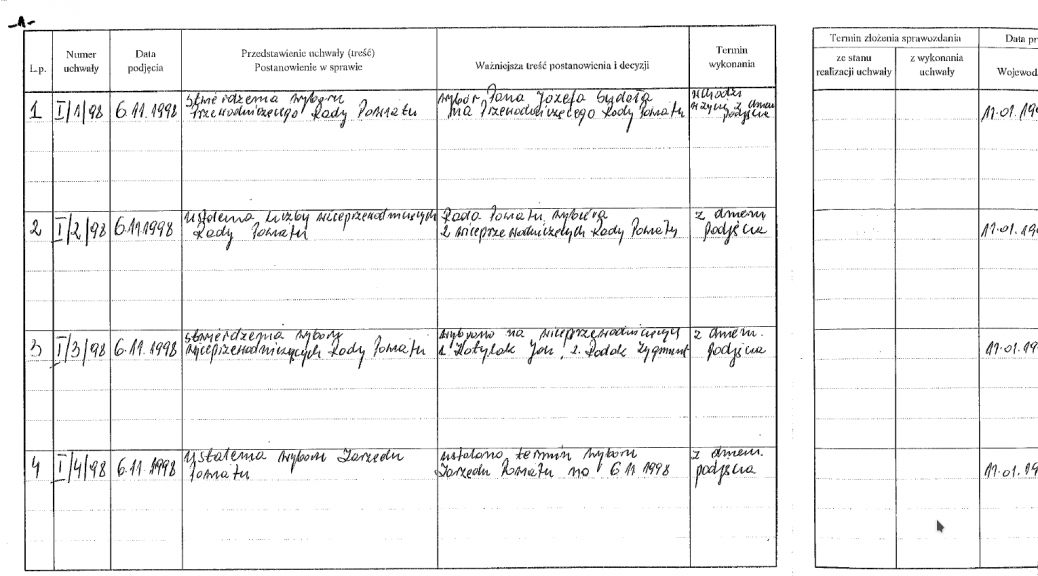 -1-
L.p.
Numer
uchwały
Data
podjęcia
Przedstawienie uchwały (treść)
Postanowienie w sprawie
Ważniejsza treść postanowienia i decyzji
Termin
wykonania
Termin złożenia sprawozdania
ze stanu
realizacji uchwały
z wykonania
uchwały
Data pr
Wojewod
1 I/1/98 6.11.1998
stwierdzenia wyboru
Przewodniczącego Rady Powiatu
wybór Pana Józefa
na Przewodniczącego Rady Powiatu
wchodzi
w życie z dniem
podjęcia
11.01.199
2 I/2/98 6.11.1998
ustalenia liczby wiceprzewodniczących
Rady Powiatu
Rada Powiatu wybiera
2 wiceprzewodniczących Rady Powiatu
z dniem
podjęcia
11.01.199
3 I/3/98 6.11.1998
stwierdzenia wyboru
wiceprzewodniczących Rady Powiatu
wybrano na wiceprzewodniczących
1. Kotylak Jan, 2. Zygmunt
z dniem.
podjęcia
11.01.199
4 I/4/98 6.11.1998
ustalenia wyboru Zarządu
Powiatu
ustalono termin wyboru
Zarządu Powiatu na 6 11 1998
z dniem.
podjęcia
11.01.19